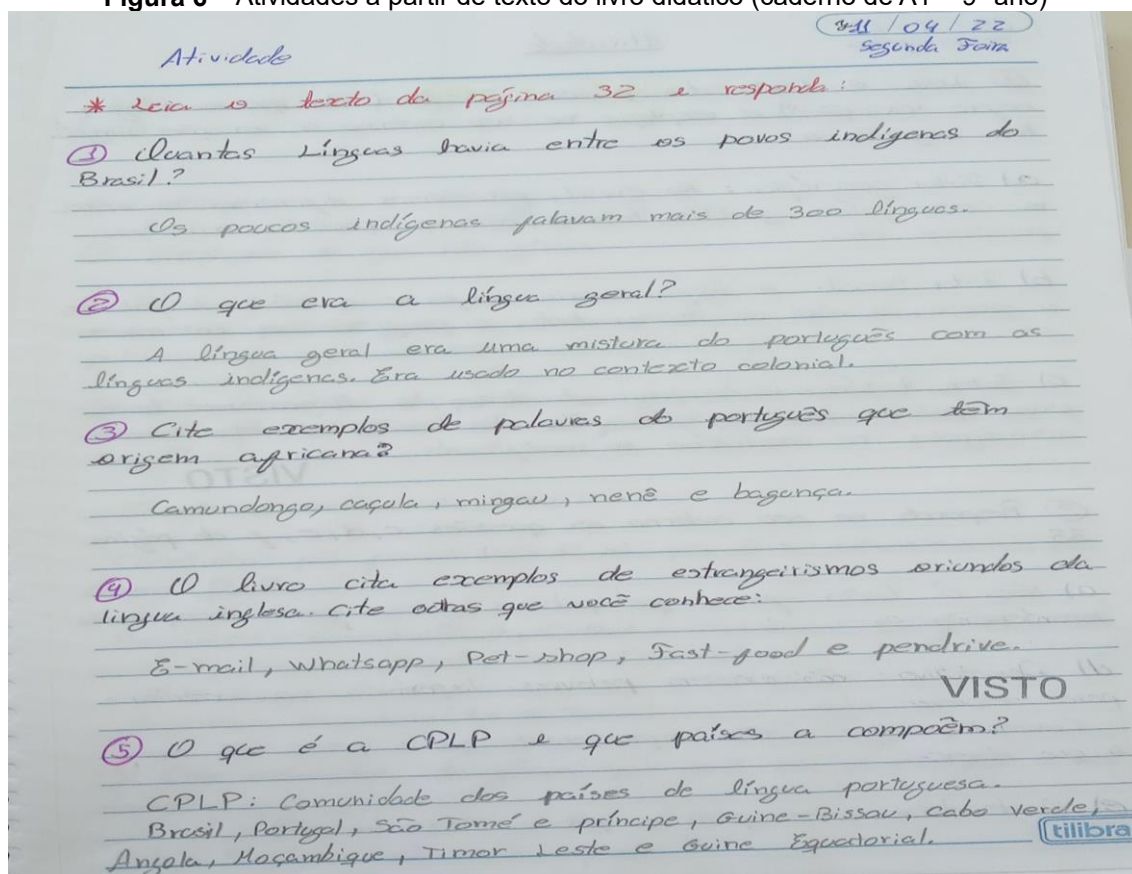 Figura 6 – Atividades a partir de texto do livro didático (caderno de A1 – 9º ano)
11/04/22
Atividade
Segunda Feira
* Leia o texto da página 32 e responda:
① Quantas Línguas havia entre os povos indígenas do
Brasil?
Os poucos indígenas falavam mais de 300 línguas.
② O que era a língua geral?
A língua geral era uma mistura do português com as
línguas indígenas. Era usado no contexto colonial.
③ Cite exemplos de palavras do português que têm
origem africana?
Camundongo, caçula, mingau, nenê e bagunça.
④ O livro cita exemplos de estrangeirismos oriundos da
língua inglesa. Cite outras que você conhece:
E-mail, Whatsapp, Pet-shop, Fast-food e pendrive.
VISTO
⑤ O que é a CPLP e que países a compoêm?
CPLP: Comunidade dos países de língua portuguesa.
Brasil, Portugal, São Tomé e príncipe, Guine-Bissau, Cabo verde,
Angola, Moçambique, Timor Leste e Guine Equatorial.
tilibra